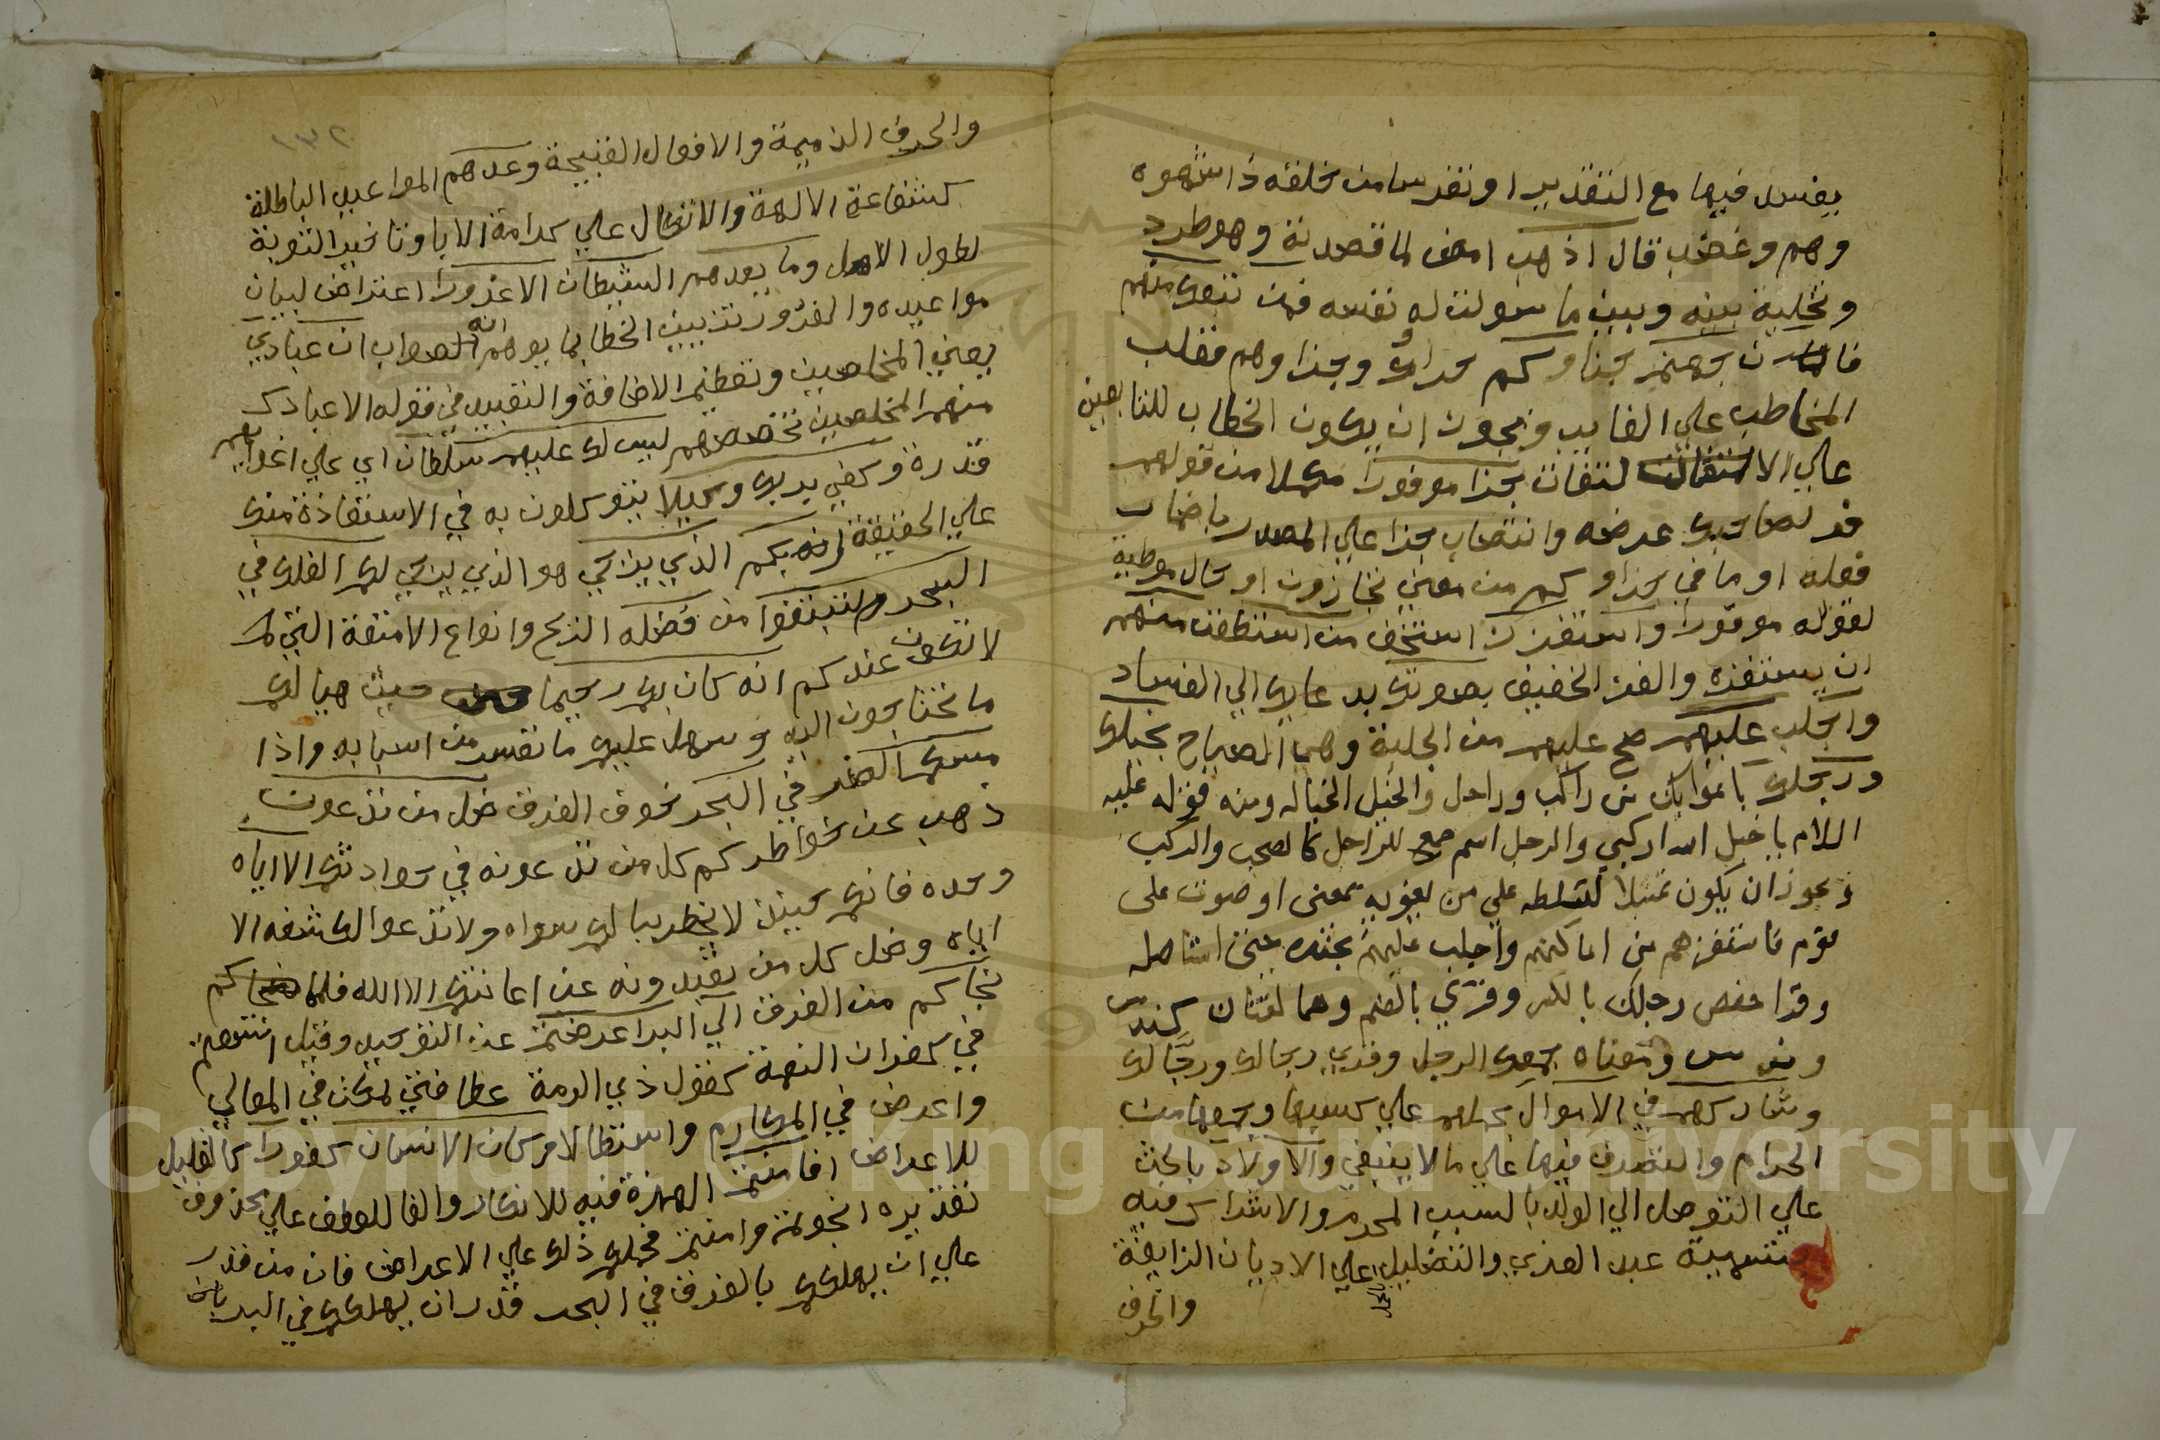 يفسد فيها مع التقدير او تفرسا من خلقه ذا شهوة
وهم وغضب قال اذهب امض لما قصدته وهو طرد
وتخلية بينه وبين ما سولت له نفسه فمن تبعك منهم
فان جهنم جزاوكم جزاوك وجزاوهم فغلب
المخاطب علي الغايب ويجوز ان يكون الخطاب للتابعين
علي الالتفات جزا موفورا مكملا من قولهم
فر لصاحبك عرضه وانتصاب جزا علي المصدر باضمار
فعله او ما في جزاوكم من معني تجازون او حال موطية
لقوله موفورا واستفزز استخف من استطعت منهم
ان يستفزه والفز الخفيف بصوتك بدعايك الي الفساد
واجلب عليهم صح عليهم من الجلبة وهي الصياح بخيلك
ورجلك باعوانك من راكب وراجل والخيل الخياله ومنه قوله عليه
السلام يا خيل الله اركبي والرجل اسم جمع للراجل كالصحب والركب
ويجوز ان يكون تمثيلا لتسلطه علي من يغويه بمعنى او صوت على
قوم فاستفزهم من اماكنهم واجلب عليهم بجنده حتى استاصلهم
وقرا حفص رجلك بالكسر وقرئ بالضم وهما لغتان كندس
وندس ومعناه جمعك الرجل وقري رجالك ورجالك
وشاركهم في الاموال بحملهم علي كسبها وجمعها من
الحرام والتصرف فيها علي ما لا ينبغي والاولاد بالحث
علي التوصل الي الولد بالسبب المحرم والاشراك فيه
بتسمية عبد العزي والتضليل بالحمل علي الاديان الزايغة
والحرف
١٣٢
والحرف الذميمة والافعال القبيحة وعدهم المواعيد الباطلة
كشفاعة الالهة والاتكال علي كرامة الابا وتاخير التوبة
لطول الامل وما يعدهم الشيطان الا غرورا اعتراض لبيان
مواعيده والغرور تزيين الخطا بما يوهم انه الصواب ان عبادي
يعني المخلصين وتعظيم الاضافة والتقييد في قوله الا عبادك
منهم المخلصين تخصصهم ليس لك عليهم سلطان اي علي اغوايهم
قدرة وكفي بربك وكيلا يتوكلون به في الاستعاذة منك
علي الحقيقة ربكم الذي يزجي هو الذي يزجي لكم الفلك في
البحر لتبتغوا من فضله الريح وانواع الامتعة التي لـ
لا تكون عندكم انه كان بكم رحيما حيث هيا لكم
ما تحتاجون اليه وسهل عليكم ما تعسر من اسبابه واذا
مسكم الضر في البحر خوف الغرق ضل من تدعون
ذهب عن خواطركم كل من تدعونه في حوادثكم الا اياه
وحده فانكم حينئذ لا يخطر ببالكم سواه ولا تدعوا لكشفه الا
اياه وضل كل من تعبدونه عن اعانتكم الا الله فلما نجاكم
نجاكم من الغرق الي البر اعرضتم عن التوحيد وقيل اتسعتم
في كفران النعمة كقول ذي الرمة عطا فتي تمكن في المعالي
واعرض في المكارم واستطالا وكان الانسان كفورا كالتعليل
للاعراض افامنتم الهمزة فيه للانكار والفا للعطف علي محذوف
تقديره انجوتم وامنتم فحملكم ذلك علي الاعراض فان من قدر
علي ان يهلككم بالغرق في البحر قدر ان يهلككم في البر بان